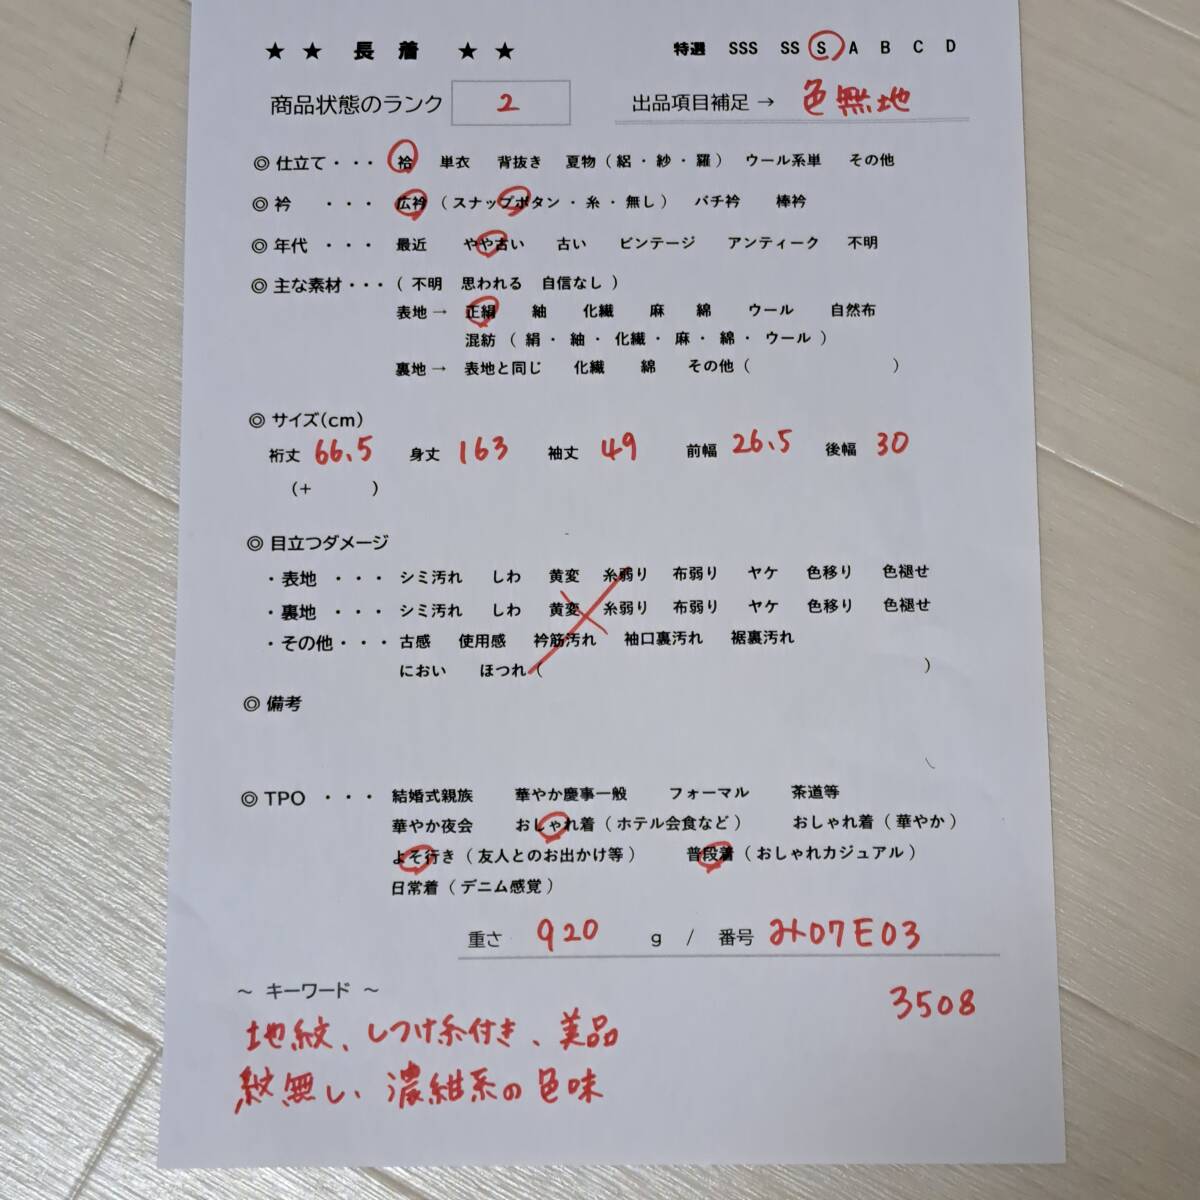 ★ ★ 長 着 ★ ★ 特選 SSS SS S A B C D
商品状態のランク 2 出品項目補足 → 色無地
◎ 仕立て ・・・ 袷 単衣 背抜き 夏物 ( 絽 ・ 紗 ・ 羅 ) ウール系単 その他
◎ 衿 ・・・ 広衿 ( スナップボタン ・ 糸 ・ 無し ) バチ衿 棒衿
◎ 年代 ・・・ 最近 やや古い 古い ビンテージ アンティーク 不明
◎ 主な素材 ・・・ ( 不明 思われる 自信なし )
表地 → 正絹 紬 化繊 麻 綿 ウール 自然布
混紡 ( 絹 ・ 紬 ・ 化繊 ・ 麻 ・ 綿 ・ ウール )
裏地 → 表地と同じ 化繊 綿 その他 ( )
◎ サイズ(cm)
裄丈 66.5 身丈 163 袖丈 49 前幅 26.5 後幅 30
(+ )
◎ 目立つダメージ
・表地 ・・・ シミ汚れ しわ 黄変 糸弱り 布弱り ヤケ 色移り 色褪せ
・裏地 ・・・ シミ汚れ しわ 黄変 糸弱り 布弱り ヤケ 色移り 色褪せ
・その他 ・・・ 古感 使用感 衿筋汚れ 袖口裏汚れ 裾裏汚れ
におい ほつれ ( )
◎ 備考
◎ TPO ・・・ 結婚式親族 華やか慶事一般 フォーマル 茶道等
華やか夜会 おしゃれ着 ( ホテル会食など ) おしゃれ着 ( 華やか )
よそ行き ( 友人とのお出かけ等 ) 普段着 ( おしゃれカジュアル )
日常着 ( デニム感覚 )
重さ 920 g / 番号 み07E03
～ キーワード ～ 3508
地紋、しつけ糸付き、美品
紋無し、濃紺系の色味